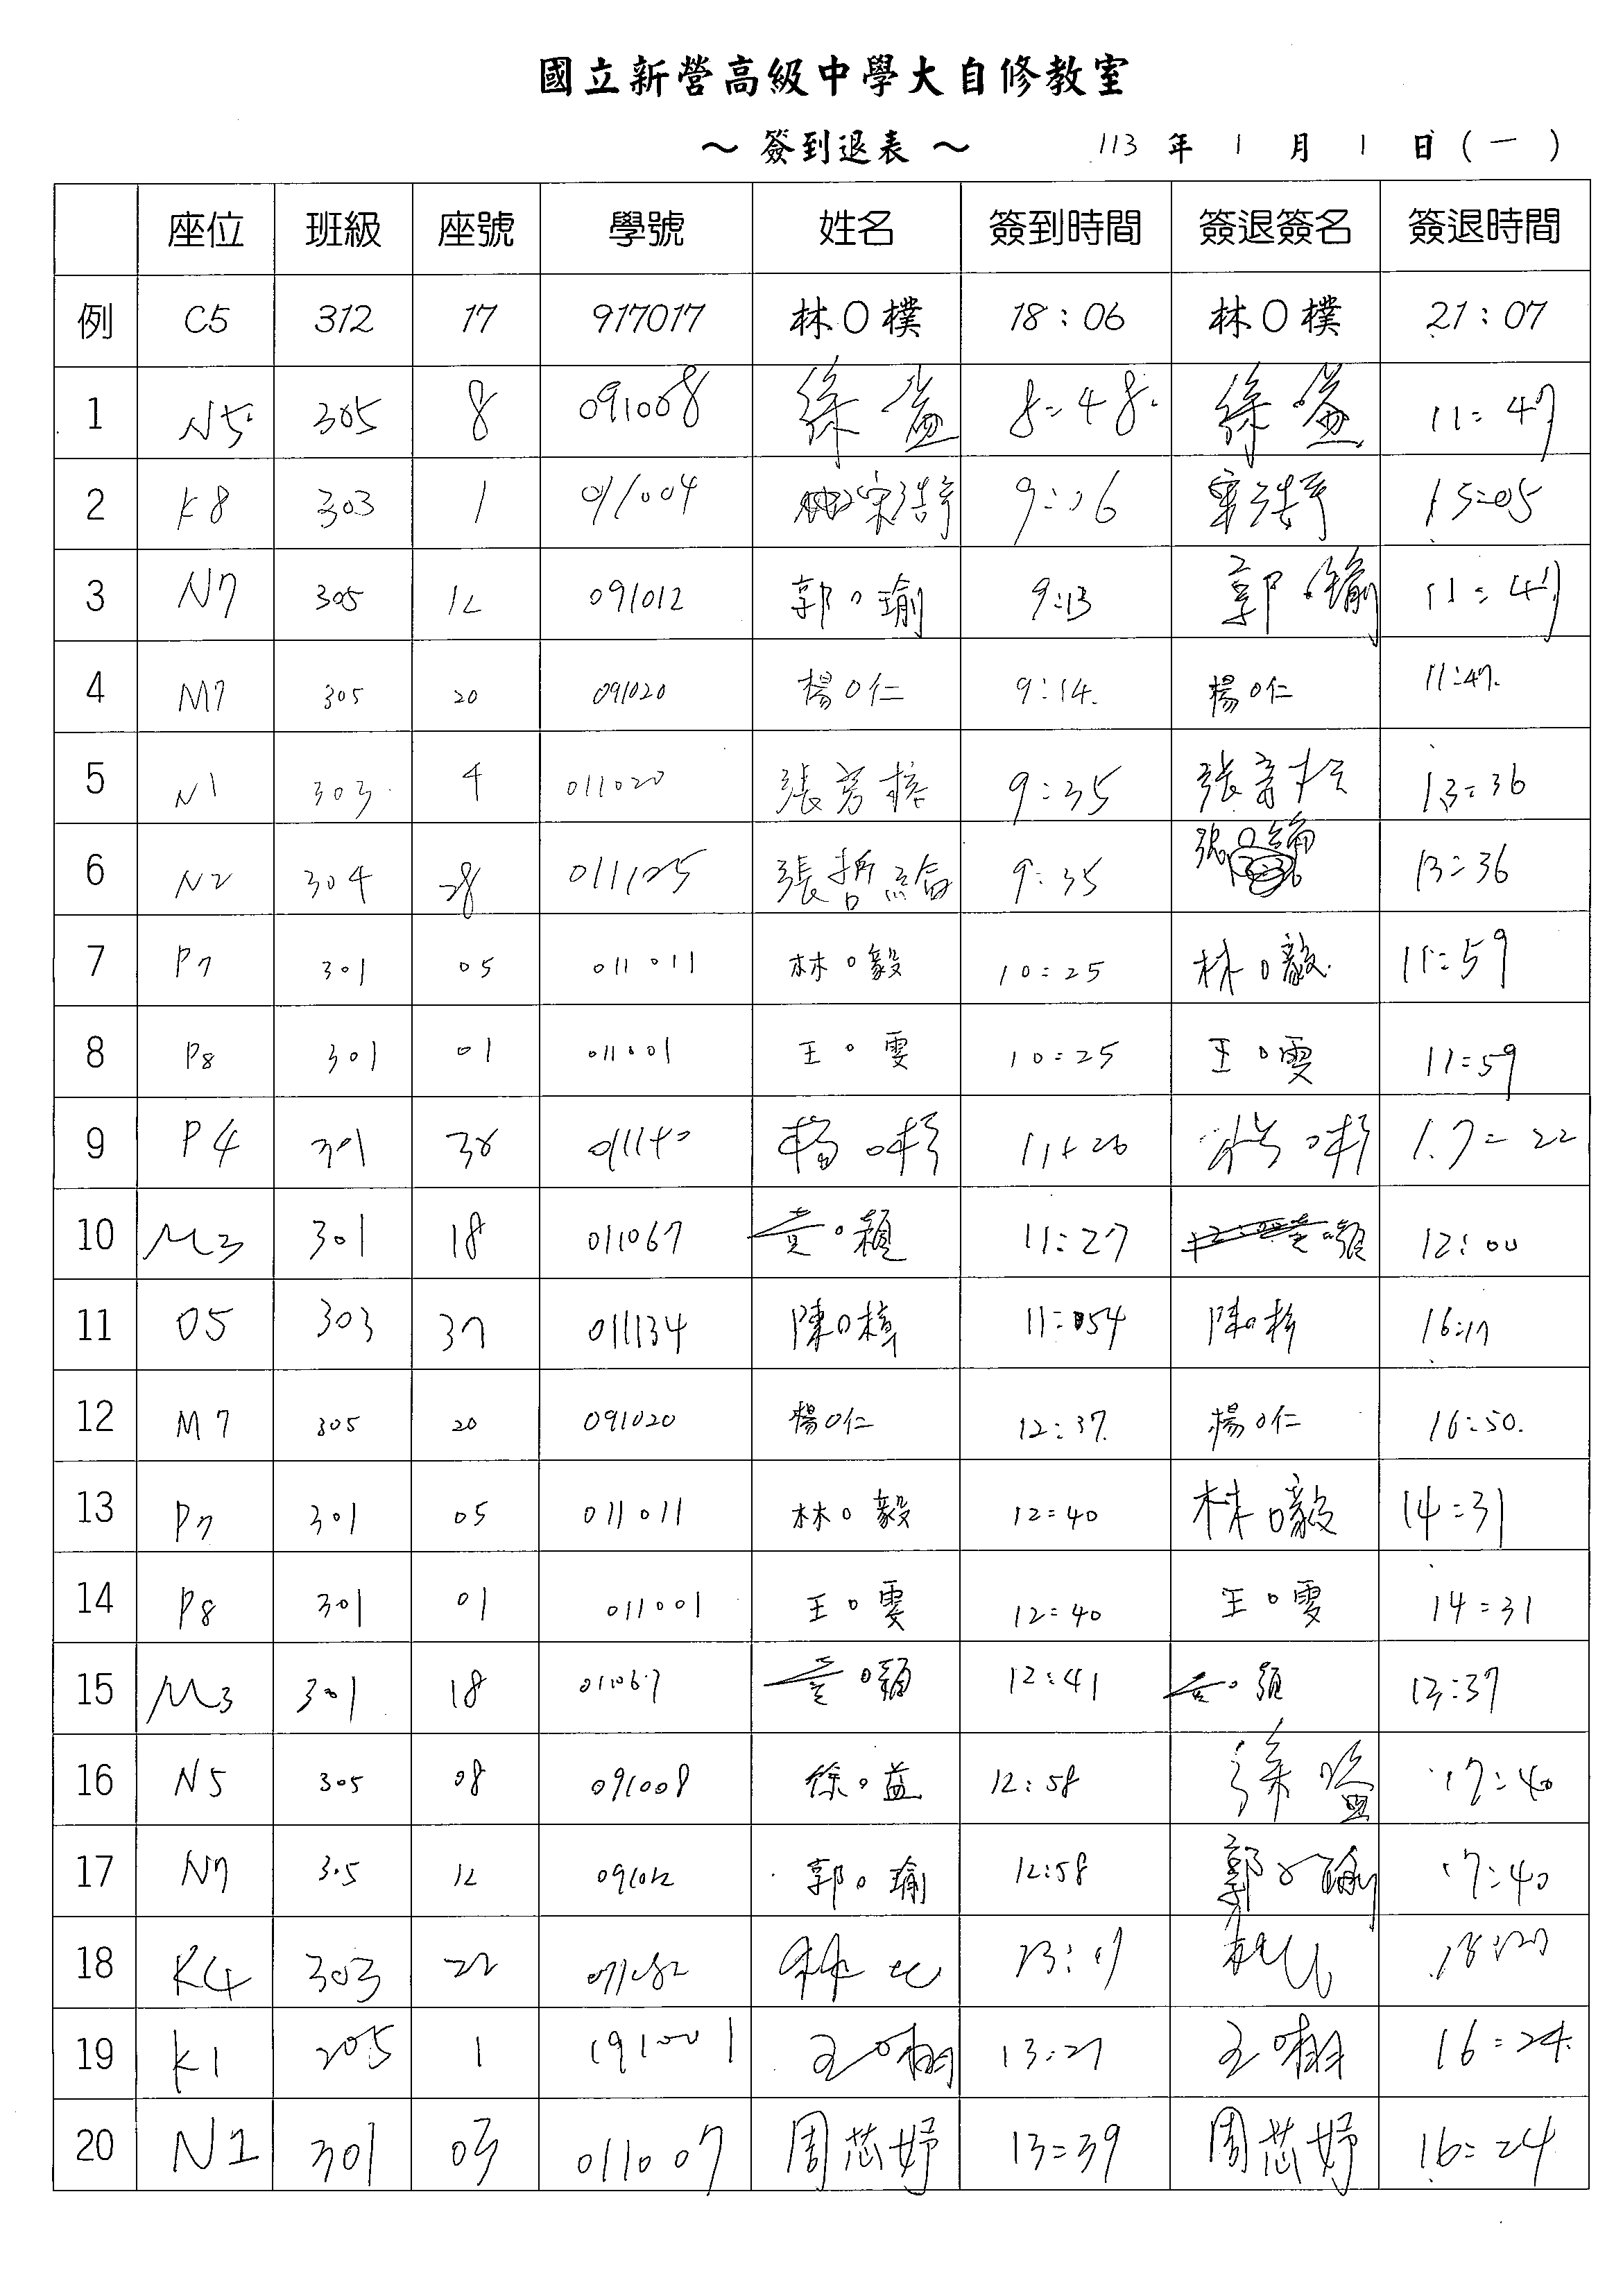 國立新營高級中學大自修教室
～ 簽到退表 ～ 113 年 1 月 1 日 ( 一 )
座位 班級 座號 學號 姓名 簽到時間 簽退簽名 簽退時間
例 C5 312 17 917017 林O樸 18：06 林O樸 21：07
1 N5 305 8 091008 徐 益 8:48 徐 益 11:47
2 K8 303 1 011004 9:06 15:05
3 N7 305 12 091012 郭O瑜 9:13 郭O瑜 11:47
4 M7 305 20 091020 楊O仁 9:14. 楊O仁 11:47.
5 N1 303 4 011020 張 9:35 張 13:36
6 N2 304 28 011125 張哲綸 9:35 張O綸 13:36
7 P7 301 05 011011 林O毅 10:25 林O毅 11:59
8 P8 301 01 011001 王O雯 10:25 王O雯 11:59
9 P4 301 011140 楊O 11:26 17:22
10 M3 301 18 011067 黃O穎 11:27 黃O穎 12:00
11 O5 303 37 011134 陳O樟 11:54 陳O 16:17
12 M7 305 20 091020 楊O仁 12:37. 楊O仁 16:50.
13 P7 301 05 011011 林O毅 12:40 林O毅 14:31
14 P8 301 01 011001 王O雯 12:40 王O雯 14:31
15 M3 301 18 011067 黃O穎 12:41 黃O穎 13:37
16 N5 305 08 091008 徐O益 12:58 徐 益 17:40
17 N7 305 12 091012 郭O瑜 12:58 郭O瑜 17:40
18 K4 303 22 011082 林 13:17 林
19 K1 205 1 191001 王O 13:27 王O 16:24.
20 N1 301 03 011007 周芯妤 13:39 周芯妤 16:24